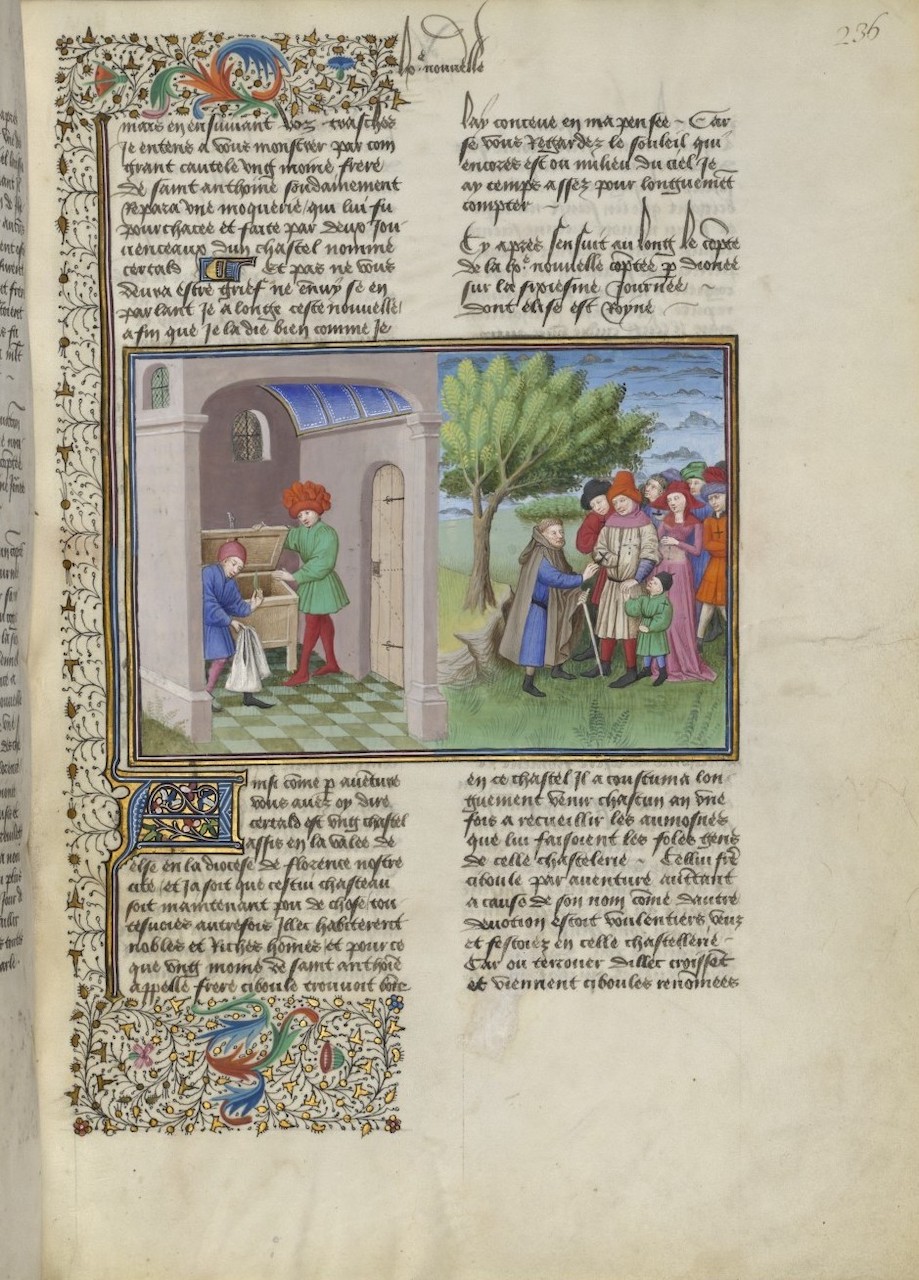 236
xe nouvelle
mais en ensuivant voz trasches
Je entens a vous monstrer par com
grant cautele ung moine frere
de saint anthoine soudainement
Repara une moquerie qui lui fu
pourchacee et faite par deux Jou
uenceaux dun chastel nomme
certald Et pas ne vous
deura estre grief ne ennuy se en
parlant Je alonge ceste nouvelle
afin que Je la die bien comme Je
lay conceue en ma pensee ~ Car
se vous Regardez le souleil qui
encores est ou milieu du ciel Je
ay temps assez pour longuemẽt
compter ~
Cy apres sensuit au long le cõpte
de la xe nouvelle cõptee p dionee
sur la sixiesme Journee ~
dont elise est Royne ~
Ainsi cõme p auẽture
vous avez oy dire
certald est ung chastel
assis en la valee de
else en la diocese de florence nostre
cite / et Ja soit que cestui chasteau
soit maintenant pou de chose / tou
tesuoies autresfois Illec habiterent
nobles et Riches hõmes et pour ce
que ung moine de saint anthoĩe
appelle frere ciboule trouuoit bõne
en ce chastel Il acoustuma lon
guement venir chascun an une
fois a recueillir les aumosnes
que lui faisoient les foles gens
de celle chastelerie ~ Cellui frẽ
ciboule par auenture autãt
a cause de son nom cõme dautre
deuotion estoit voulentiers veuz
et festoiez en celle chastellerie ~
Car ou terrouer dillec croissẽt
et viennent ciboules renõmees